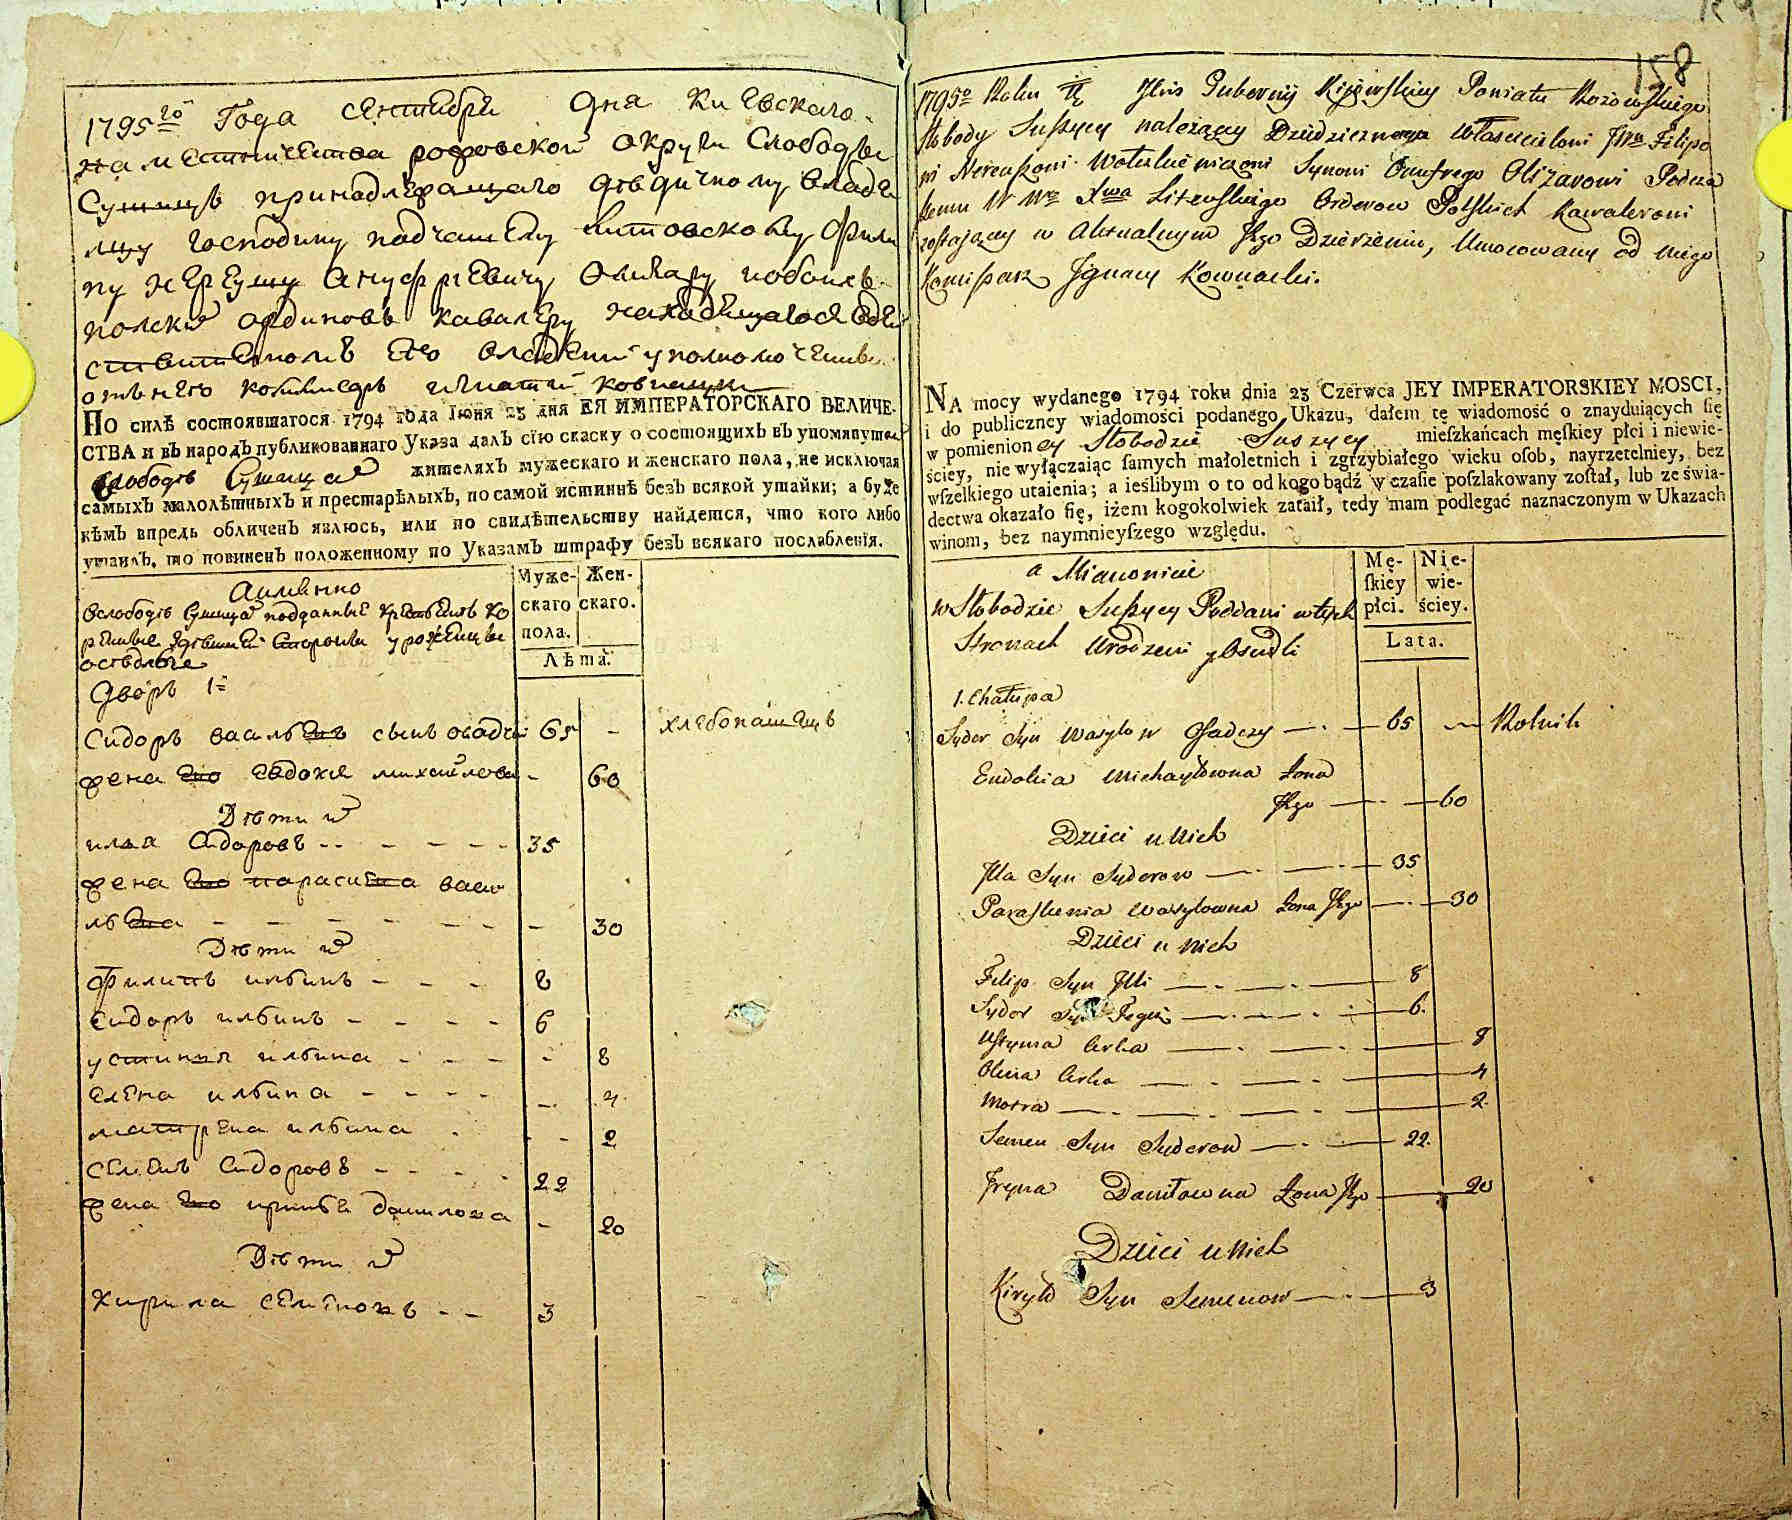 1795го Года сентября дня Киевскаго
наместничества рофовской округи Слободы
Сущицъ принадлежащаго дѣдичному владе
лцу господину подчашему литовскому фили
пу Нереушу Ануфриевичу Олизару
полскихъ ординовъ кавалеру находящагося въ дей
ствителномъ его владении уполномоченны
отъ него комисаръ игнатий ковнацки
ПО силѣ состоявшагося 1794 года Іюня 23 дня ЕЯ ИМПЕРАТОРСКАГО ВЕЛИЧЕ-
СТВА и въ народъ публикованнаго Указа далъ сїю скаску о состоящихъ въ упомянутой
слободѣ Сущицах жителяхъ мужескаго и женскаго пола, не исключая
самыхъ малолѣтныхъ и престарѣлыхъ, по самой истиннѣ безъ всякой утайки; а буде
кѣмъ впредь обличенъ явлюсь, или по свидѣтельству найдется, что кого либо
утаилъ, то повиненъ положенному по Указамъ штрафу безъ всякаго послабленїя.
Аименно
вслободѣ Сущицах подданные крестьянъ ко
ренные здѣшней стороны уроженцы
осѣдлые
Муже-
скаго
пола.
Жен-
скаго.
Лѣта.
Дворъ 1й
Сидоръ васильевъ сынъ осадчи 65 - хлебопашецъ
жена его евдокия михайлова - 60
Дѣти их
илья Сидоровъ - - - - - - 35
жена его параскева васи
льева - - - - - - - 30
Дѣти их
Филипъ ильинъ - - - - 8
Сидоръ ильинъ - - - - 6
устиния ильина - - - - 8
елена ильина - - - - - 4
матрена ильина - - 2
Семенъ Сидоровъ - - - 22
жена его ирина данилова - 20
Дѣти их
Кирила семеновъ - - 3
158
1795o Roku Guberniy Kijowskiey Powiatu Rożowskiego
Słobody Suszycy należącey Dziedzicznemu Włascicielowi JPnu Filipo
wi Nereuszowi Synowi Onufrego Olizarowi Podcza
szemu W Wo Xwa Litewskiego Orderow Polskich Kawalerowi
zostającey w Aktualnym Jego Dzierżeniu, Umocowany od niego
Komisarz Jgnacy Kownacki.
NA mocy wydanego 1794 roku dnia 23 Czerwca JEY IMPERATORSKIEY MOSCI,
i do publiczney wiadomości podanego Ukazu, dałem tę wiadomość o znayduiących ſię
w pomienioney Słobodzie Suszycy mieſzkańcach męſkiey płci i niewie-
ściey, nie wyłączaiąc ſamych małoletnich i zgrzybiałego wieku oſob, nayrzetelniey, bez
wſzelkiego utaienia; a ieślibym o to od kogo bądź w czaſie poſzlakowany zoſtał, lub ze świa-
dectwa okazało ſię, iżem kogokolwiek zataił, tedy mam podlegać naznaczonym w Ukazach
winom, bez naymnieyſzego względu.
a Mianowicie
w Słobodzie Suszycy Poddani w tych
Stronach Urodzeni y Osiedli
Mę-
ſkiey
płci.
Nie-
wie-
ściey.
Lata.
1. Chałupa
Sydor Syn Wasylow Osadczy — 65 — Rolnik
Eudokia Michayłowna Żona
Jego — 60
Dzieci u Nich
Jlla Syn Syderow — 35
Paraskewia Wasylowna Żona Jego — 30
Dzieci u Nich
Filip Syn Jlli — 8
Sydor Syn Tegoż — 6.
Ustyma Corka — 8
Olena Corka — 4
Motra — 2.
Semen Syn Syderow — 22.
Jryna Daniłowna Żona Jego — 20
Dzieci u Nich
Kiryło Syn Semenow — 3